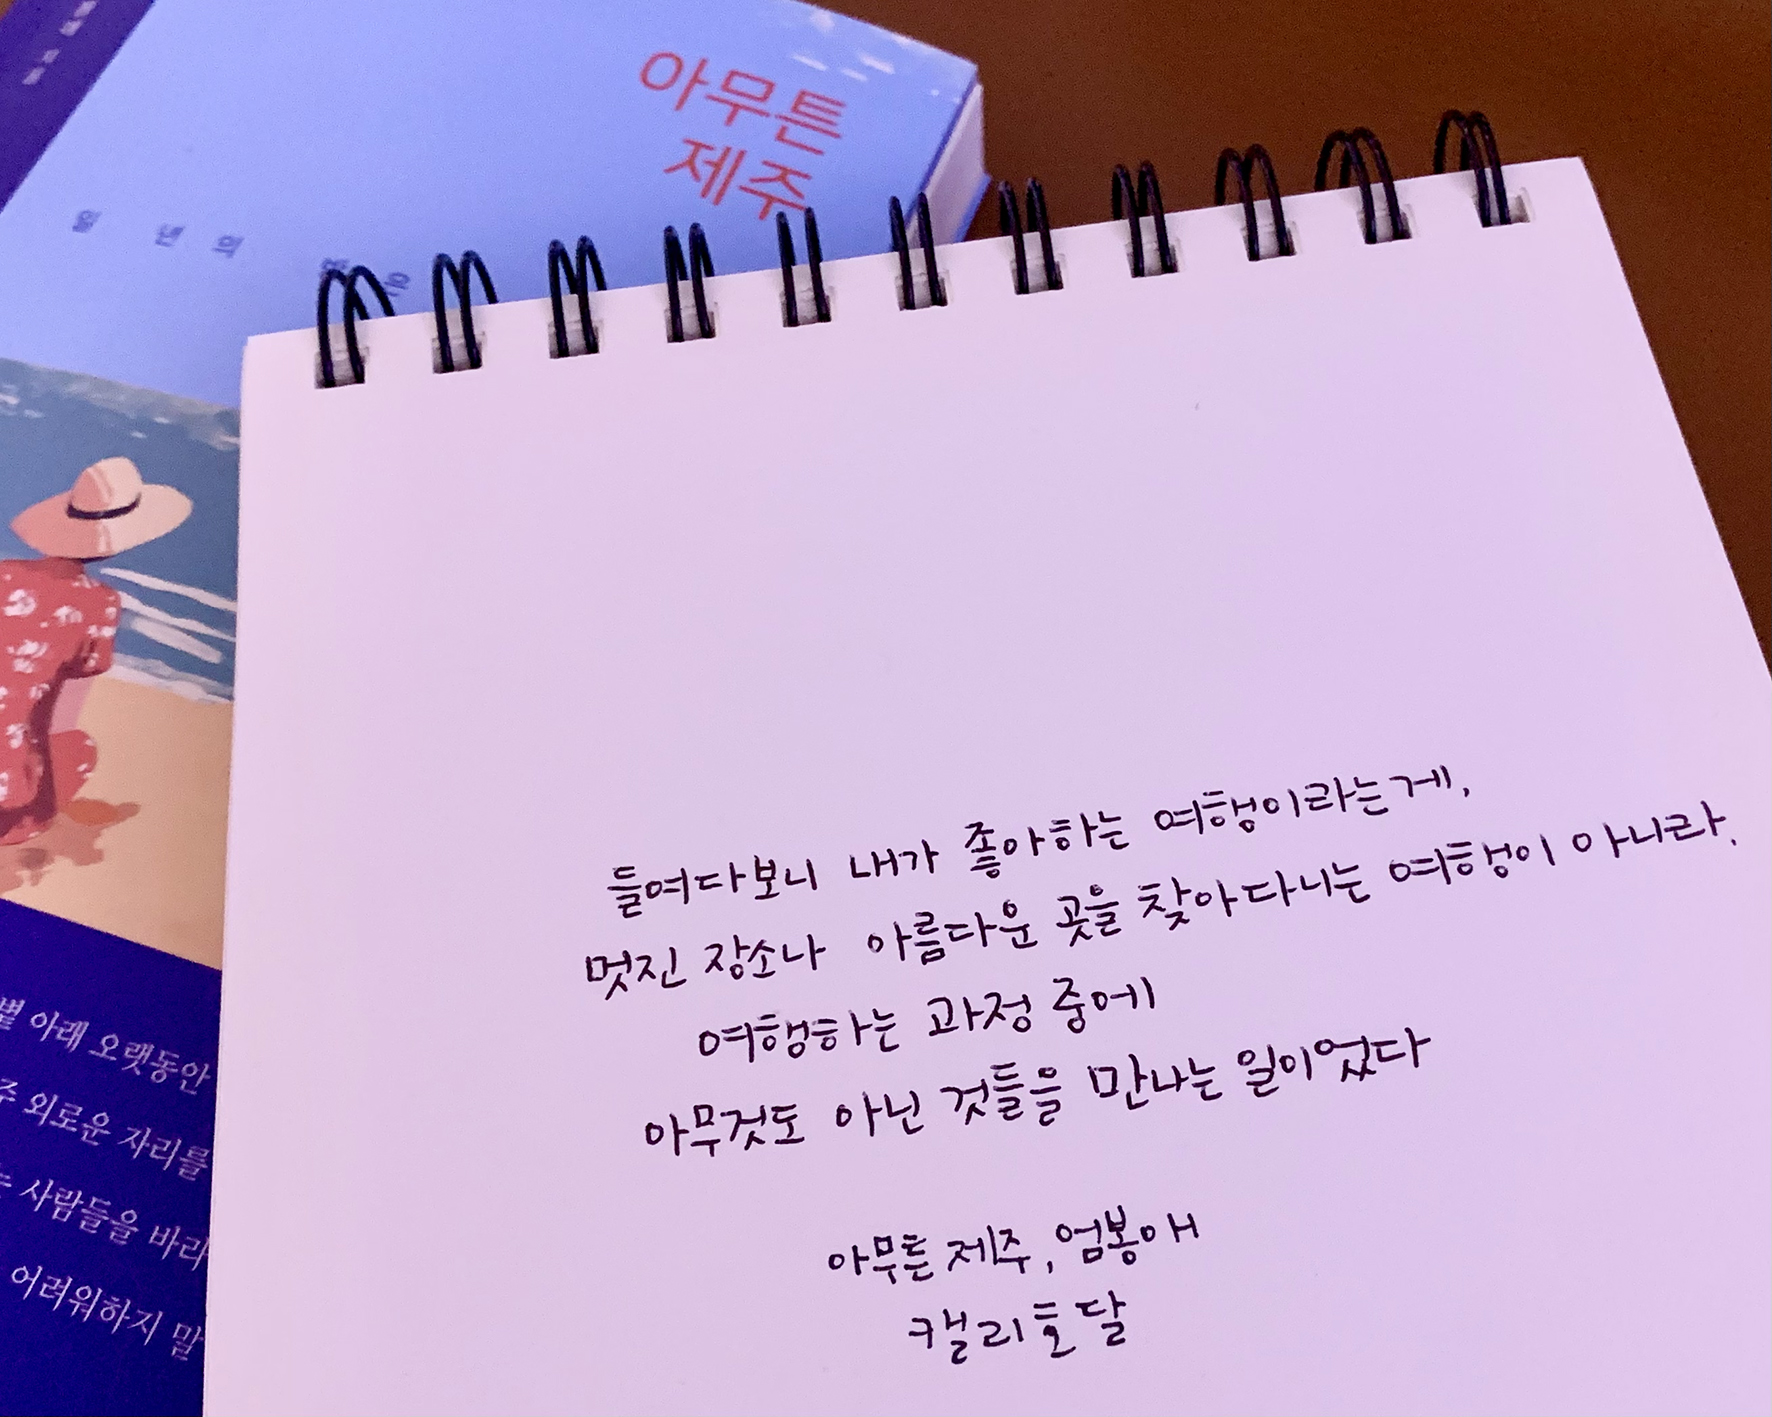 아무튼
제주
일 년의
들여다보니 내가 좋아하는 여행이라는게,
멋진 장소나 아름다운 곳을 찾아다니는 여행이 아니라,
여행하는 과정 중에
아무것도 아닌 것들을 만나는 일이었다
아무튼 제주, 엄봉애
캘리 호달
별 아래 오랫동안
주 외로운 자리를
는 사람들을 바라
어려워하지 말